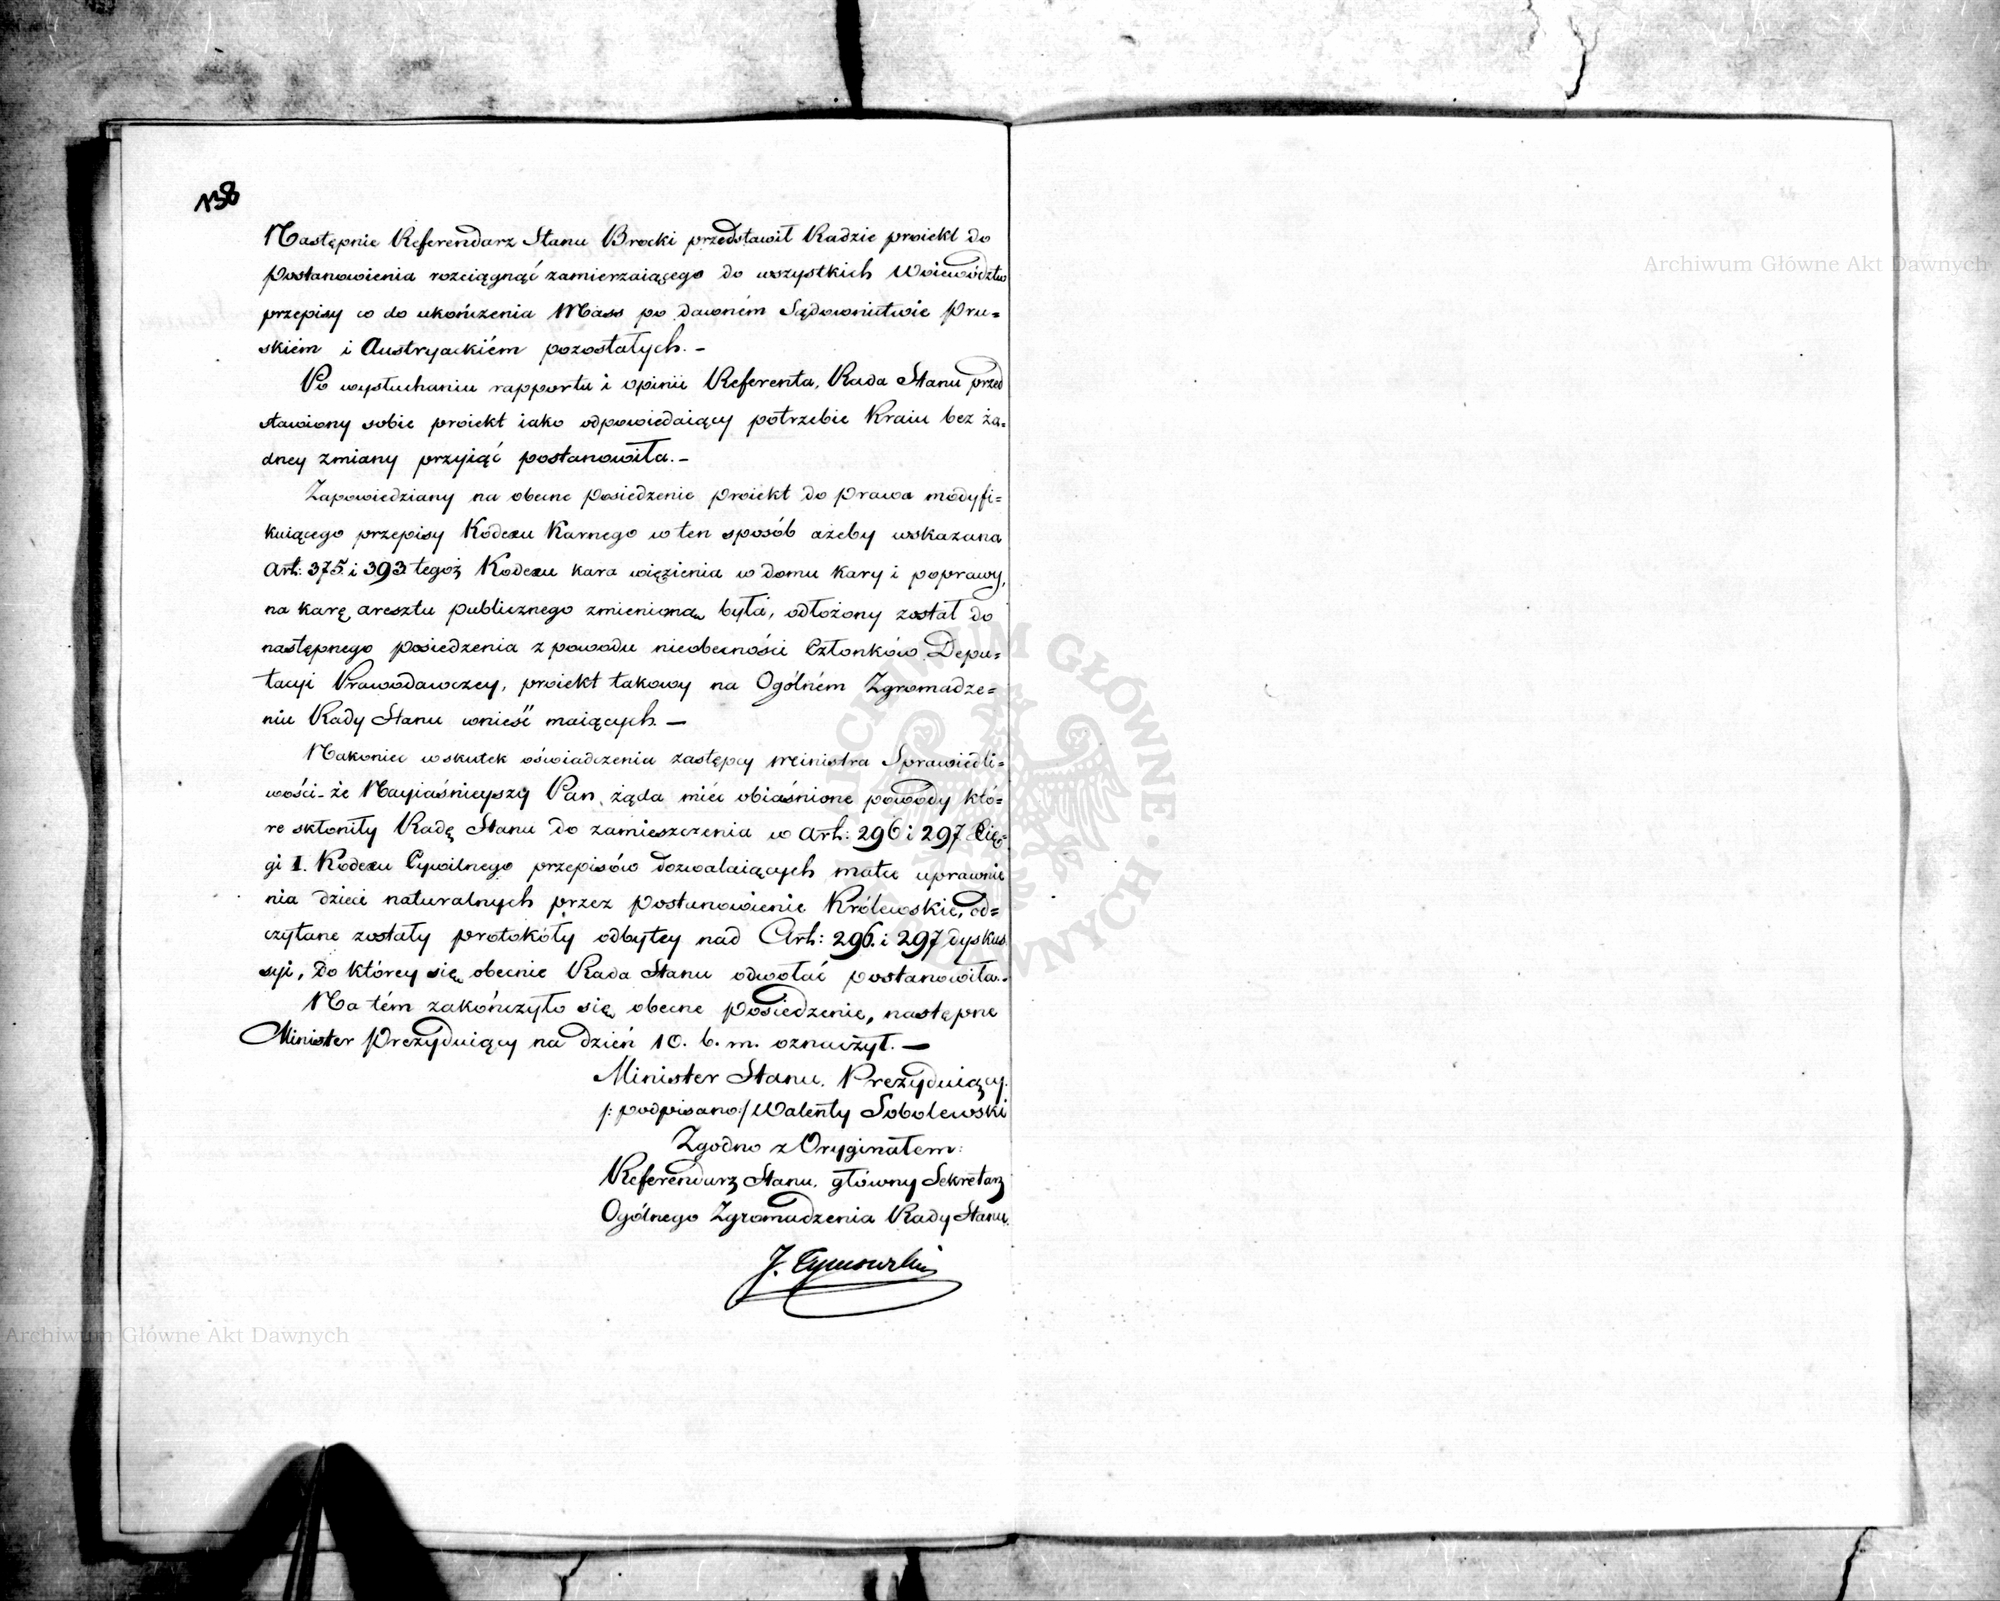 158
Następnie Referendarz Stanu Brocki przedstawił Radzie proiekt do
postanowienia rozciągnąć zamierzaiącego do wszystkich Woiewództw
przepisy co do ukończenia Mass po dawném Sądownictwie Pru=
skiém i Austryackiém pozostałych. –
Po wysłuchaniu rapportu i opinii Referenta, Rada Stanu przed
stawiony sobie proiekt iako odpowiedaiący potrzebie Kraiu bez ża=
dney zmiany przyiąć postanowiła. –
Zapowiedziany na obecne posiedzenie proiekt do prawa modyfi=
kuiącego przepisy Kodexu Karnego w ten sposób ażeby wskazana
Art: 375. i 393. tegoż Kodexu kara więzienia w domu kary i poprawy,
na karę aresztu publicznego zmieniona była, odłożony został do
następnego posiedzenia z powodu nieobecności Członków Depu=
tacyi Prawodawczey, proiekt takowy na Ogólném Zgromadze=
niu Rady Stanu wnieść maiących. –
Nakoniec wskutek oświadczenia zastępcy Ministra Sprawiedli=
wości - że Nayiaśnieyszy Pan, żąda mieć obiaśnione powody któ=
re skłoniły Radę Stanu do zamieszczenia w Art: 296 i 297 Xię=
gi I. Kodexu Cywilnego przepisów dozwalaiących matce uprawnie
nia dzieci naturalnych przez postanowienie Królewskie, od=
czytane zostały protokóły odbytey nad Art: 296. i 297 dyskus
syi, do którey się obecnie Rada Stanu odwołać postanowiła. –
Na tém zakończyło się obecne posiedzenie, następne
Minister Prezyduiący na dzień 10. b. m. oznaczył. –
Minister Stanu, Prezyduiący.
/: podpisano :/ Walenty Sobolewski
Zgodno z Oryginałem:
Referendarz Stanu, główny Sekretarz
Ogólnego Zgromadzenia Rady Stanu.
J. Tymowski
Archiwum Główne Akt Dawnych
Archiwum Główne Akt Dawnych
ARCHIWUM GŁÓWNE · AKT DAWNYCH ·